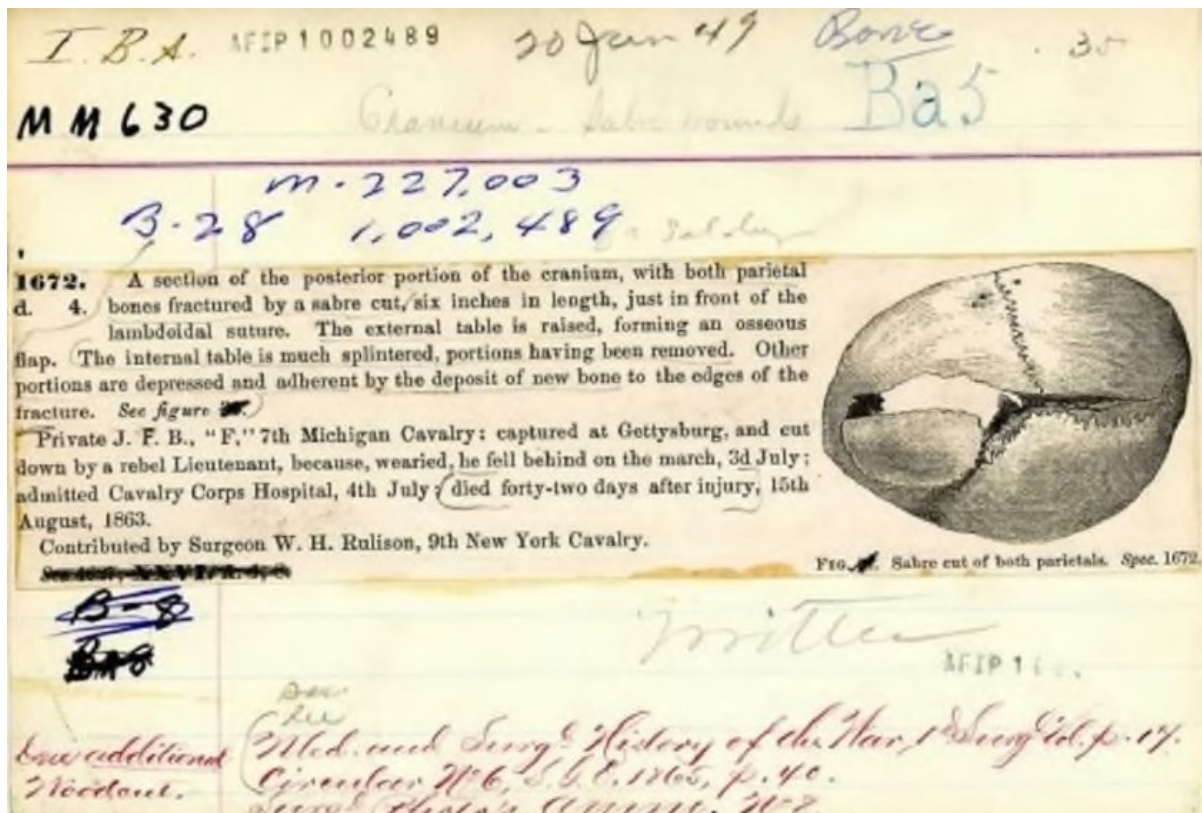 I.B.A. AFIP1002489 20 Jan 49 Bone . 35
MM630 Cranium - Sabre wounds Ba5
M-227,003
B-28 1,002,489
1672. A section of the posterior portion of the cranium, with both parietal
d. 4. bones fractured by a sabre cut, six inches in length, just in front of the
lambdoidal suture. The external table is raised, forming an osseous
flap. The internal table is much splintered, portions having been removed. Other
portions are depressed and adherent by the deposit of new bone to the edges of the
fracture. See figure
Private J. F. B., "F," 7th Michigan Cavalry: captured at Gettysburg, and cut
down by a rebel Lieutenant, because, wearied, he fell behind on the march, 3d July;
admitted Cavalry Corps Hospital, 4th July; died forty-two days after injury, 15th
August, 1863.
Contributed by Surgeon W. H. Rulison, 9th New York Cavalry.
FIG. Sabre cut of both parietals. Spec. 1672.
B-8
AFIP 1
See
See
additional Med. and Surgl History of the War, 1st Surg Vol. p. 17.
Woodcut. Circular No 6, S.G.O. 1865, p. 40.